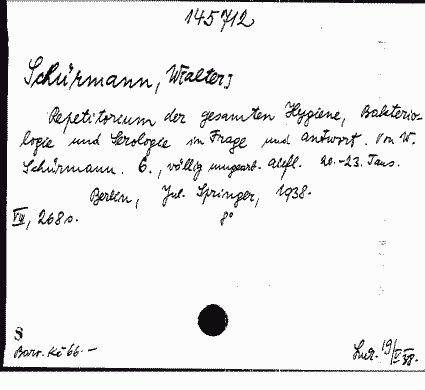 145712
Schürmann, W[alter]
Repetitorium der gesamten Hygiene, Bakterio-
logie und Serologie in Frage und Antwort. Von W.
Schürmann. 6., völlig umgearb. Aufl. 20.-23. Taus.
Berlin, Jul. Springer, 1938.
VIII, 268 S. 8°
8
Barr. Kč 66.-
19/V 38.